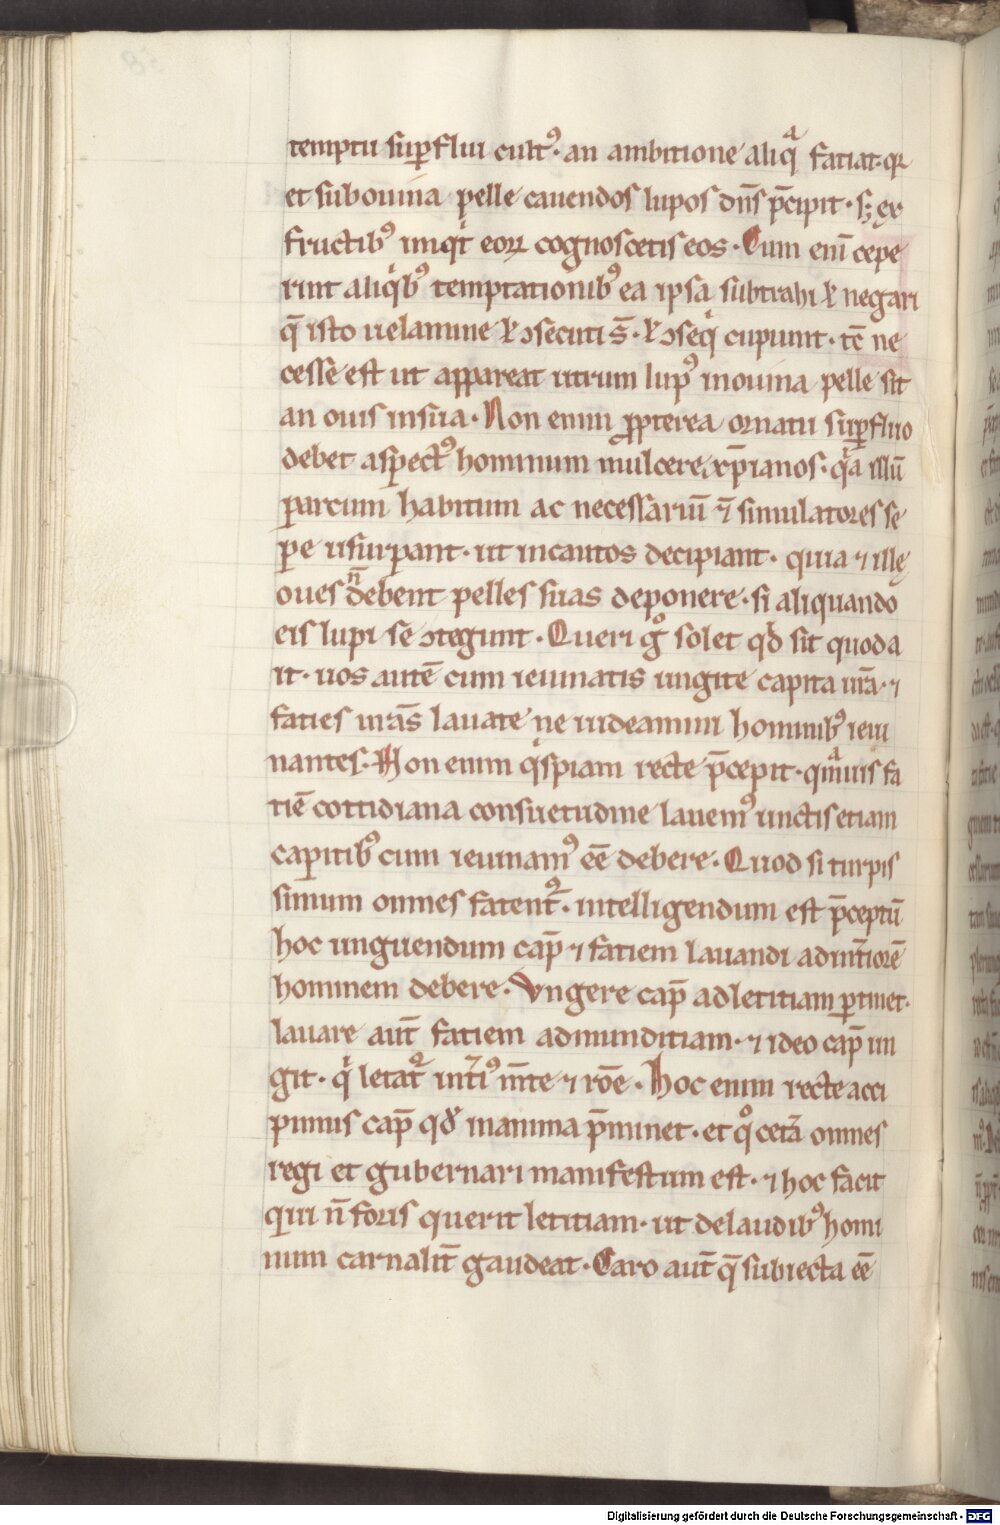 temptu sup̄flui cult᷒· an ambitione aliqͣ fatiat· qꝛ
et sub ouina pelle cauendos lupos dn̄s p̄cipit· sꝫ ex
fructib᷒ inqͥt eoꝝ cognoscetis eos· Cum eni̅ cepe
rint aliqͥb᷒ temptationib᷒ ea ipsa subtrahi ł negari
q̄ isto uelamine ł ↄsecuti s̄· ł ↄseqͥ cupiunt· tc̄ ne
cesse est ut appareat utrum lup᷒ in ouina pelle sit
an ouis in sua· Non enim ꝓpterea ornatu sup̄fluo
debet aspect᷒ hominum mulcere xp̄ianos· qͥa illū
parcum habitum ac necessariū ⁊̄ simulatores se
pe usurpant· ut incautos decipiant· quia ⁊ ille
oues n̄ debent pelles suas deponere· si aliquando
eis lupi se ↄtegunt· Queri gͦ solet qd̄ sit quod a
it· uos autē cum ieiunatis ungite capita ur̄a· ⁊
faties ur̄as lauate ne uideamini hominib᷒ ieiu
nantes· Non enim qͥspiam recte p̄cepit· qͣmuis fa
tiē cottidiana consuetudine lauem᷒ unctis etiam
capitib᷒ cum ieiunam᷒ ee̅ debere· Quod si turpis
simum omnes fatent᷒· intelligendum est p̄ceptū
hoc unguendum cap̄ ⁊ fatiem lauandi ad int̄iorē
hominem debere· Vngere cap̄ ad letitiam ꝑtinet·
lauare aut̄ fatiem ad munditiam· ⁊ ideo cap̄ un
git· qͥ letat᷒ int̄i᷒ m̄te ⁊ rōe· Hoc enim recte acci
pimus cap̄ qđ in anima p̄minet· et qͦ cet̄a omnes
regi et gubernari manifestum est· ⁊ hoc facit
qui n̄ foris querit letitiam· ut de laudib᷒ homi
num carnalit̄ gaudeat· Caro aut̄ q̄ subiecta ee̅
Digitalisierung gefördert durch die Deutsche Forschungsgemeinschaft - DFG